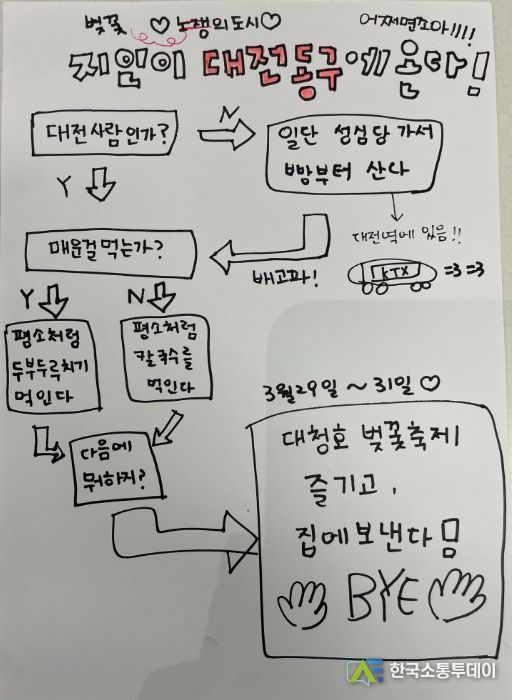 벚꽃
♡노잼의도시♡
어쩌면조아!!!!
지인이 대전동구에온다!!
대전사람인가?
N
일단 성심당 가서
빵부터 산다
Y
대전역에 있음!!
KTX
=3 =3
매운걸먹는가?
배고파!
Y
N
평소처럼
두부두루치기
먹인다
평소처럼
칼국수를
먹인다
다음에
뭐하지?
3월29일 ~ 31일 ♡
대청호 벚꽃축제
즐기고,
집에보낸다
BYE
한국소통투데이